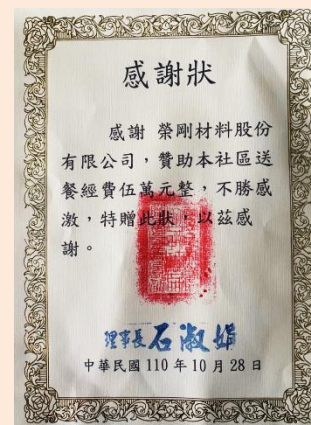 感謝狀
感謝 榮剛材料股份
有限公司，贊助本社區送
餐經費伍萬元整，不勝感
激，特贈此狀，以茲感
謝。
理事長石淑娟
中華民國 110 年 10 月 28 日